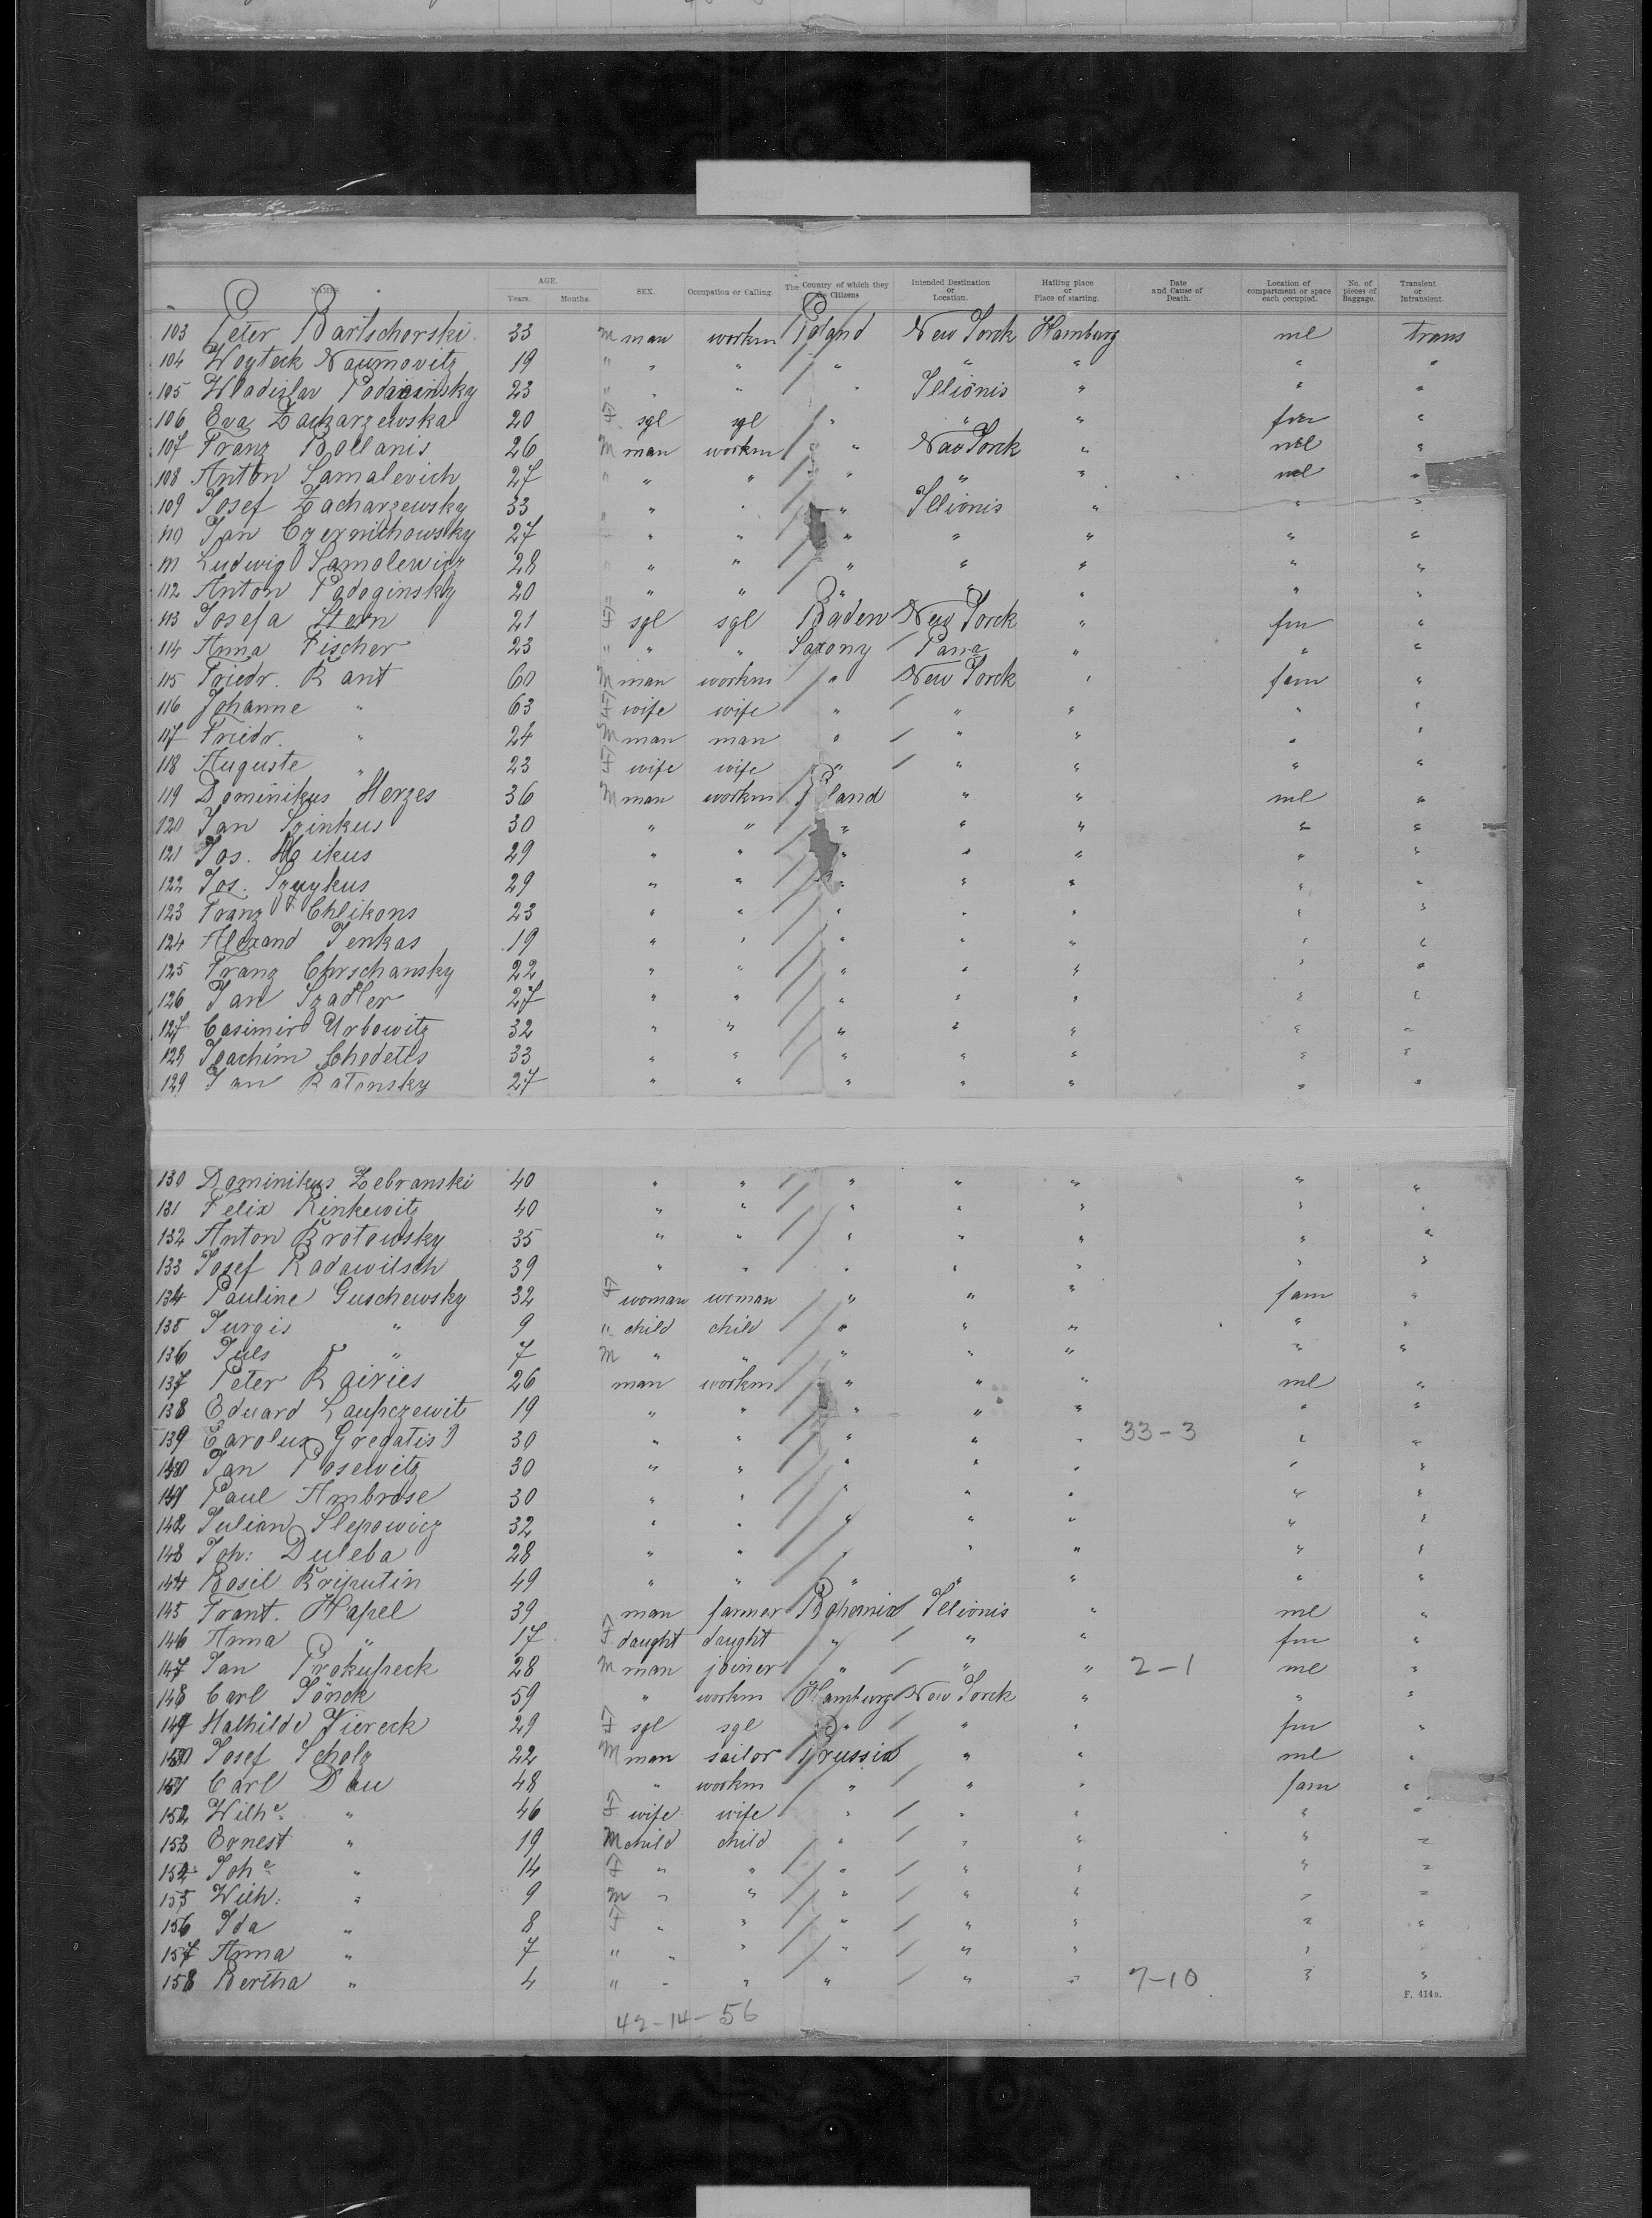 NAMES. AGE. Years. Months. SEX. Occupation or Calling. The Country of which they are Citizens Intended Destination or Location. Hailing place or Place of starting. Date and Cause of Death. Location of compartment or space each occupied. No. of pieces of Baggage. Transient or Intransient.
103 Peter Bartschorski 33 M man workm Poland New Yorck Hamburg ml trans
104 Woyteck Naumovitz 19 " " " " " " " "
105 Wladislav 23 " " " " Illionis " " "
106 Eva Zacharzewska 20 F sgl sgl " " " fm "
107 Franz Bollanis 26 M man workm " New Yorck " ml "
108 Anton Samalevich 27 " " " " " " ml "
109 Josef Zacharzewsky 33 " " " " Illionis " " "
110 Jan Czernichowsky 27 " " " " " " "
111 Ludwig Samolewicz 28 " " " " " " " "
112 Anton Padoginsky 20 " " " " " " " "
113 Josefa Stern 21 F sgl sgl Baden New Yorck " fm "
114 Anna Fischer 23 " " " Saxony Pana " " "
115 Friedr. Kant 60 M man workm " New Yorck " fam "
116 Johanne " 63 F wife wife " " " " "
117 Friedr. " 24 M man man " " " " "
118 Auguste " 23 F wife wife " " " " "
119 Dominikus Herzes 36 M man workm Poland " " ml "
120 Jan Szinkus 30 " " " " " " "
121 Jos. 29 " " " " " " "
122 Jos. 29 " " " " " " "
123 Franz Chlikons 23 " " " " " " "
124 Alexand Jenkas 19 " " " " " " "
125 Franz Chrschansky 22 " " " " " " "
126 Jan Szadler 27 " " " " " " "
127 Casimir Urbowitz 32 " " " " " " "
128 Joachim Chedetis 33 " " " " " " "
129 Jan Ratonsky 27 " " " " " " "
130 Dominikus Zebranski 40 " " " " " " "
131 Felix Rinkewitz 40 " " " " " " "
132 Anton Krotowsky 35 " " " " " " "
133 Josef Radawitsch 39 " " " " " " "
134 Pauline Guschewsky 32 F woman woman " " " fam "
135 Jurgis " 9 " child child " " " " "
136 Juls " 7 M " " " " " " "
137 Peter Kairies 26 man workm " " " ml "
138 Eduard Laupczewit 19 " " " " " " "
139 Carolus Gregatis 30 " " " " " 33-3 " "
140 Jan Posewitz 30 " " " " " " "
141 Paul Ambrose 30 " " " " " " "
142 Julian Slepowicz 32 " " " " " " "
143 Joh: Duleba 28 " " " " " " "
144 Basil Kriputin 49 " " " " " " "
145 Frant. Hapel 39 man farmer Bohemia Illionis " ml "
146 Anna " 17 F daught daught " " " fm "
147 Jan Prokupeck 28 M man joiner " " " 2-1 ml "
148 Carl Jönck 59 " workm Hamburg New Yorck " " "
149 Mathilde Viereck 29 F sgl sgl " " " fm "
150 Josef Scholz 22 M man sailor Prussia " " ml "
151 Carl Dau 48 " workm " " " fam "
152 Wilhe. " 46 F wife wife " " " " "
153 Ernest " 19 M child child " " " " "
154 Johe " 14 F " " " " " " "
155 Wilh: " 9 M " " " " " " "
156 Ida " 8 F " " " " " " "
157 Anna " 7 " " " " " " "
158 Bertha " 4 " " " " " " 7-10 " "
F. 414a.
42-14-56